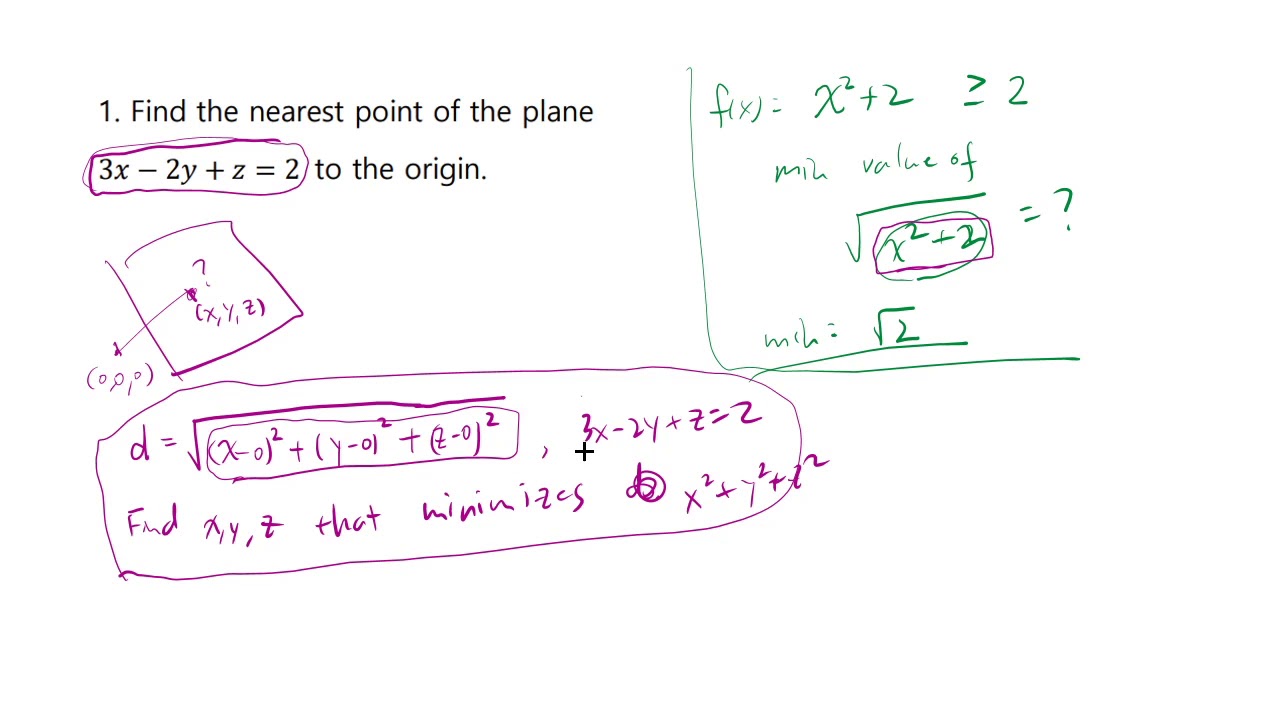 1. Find the nearest point of the plane
3x − 2y + z = 2 to the origin.
?
(x, y, z)
(0,0,0)
f(x) = x² + 2 ≥ 2
min value of
√(x² + 2) = ?
min = √2
d = √((x-0)² + (y-0)² + (z-0)²) , 3x-2y+z=2
Find x, y, z that minimizes x² + y² + z²